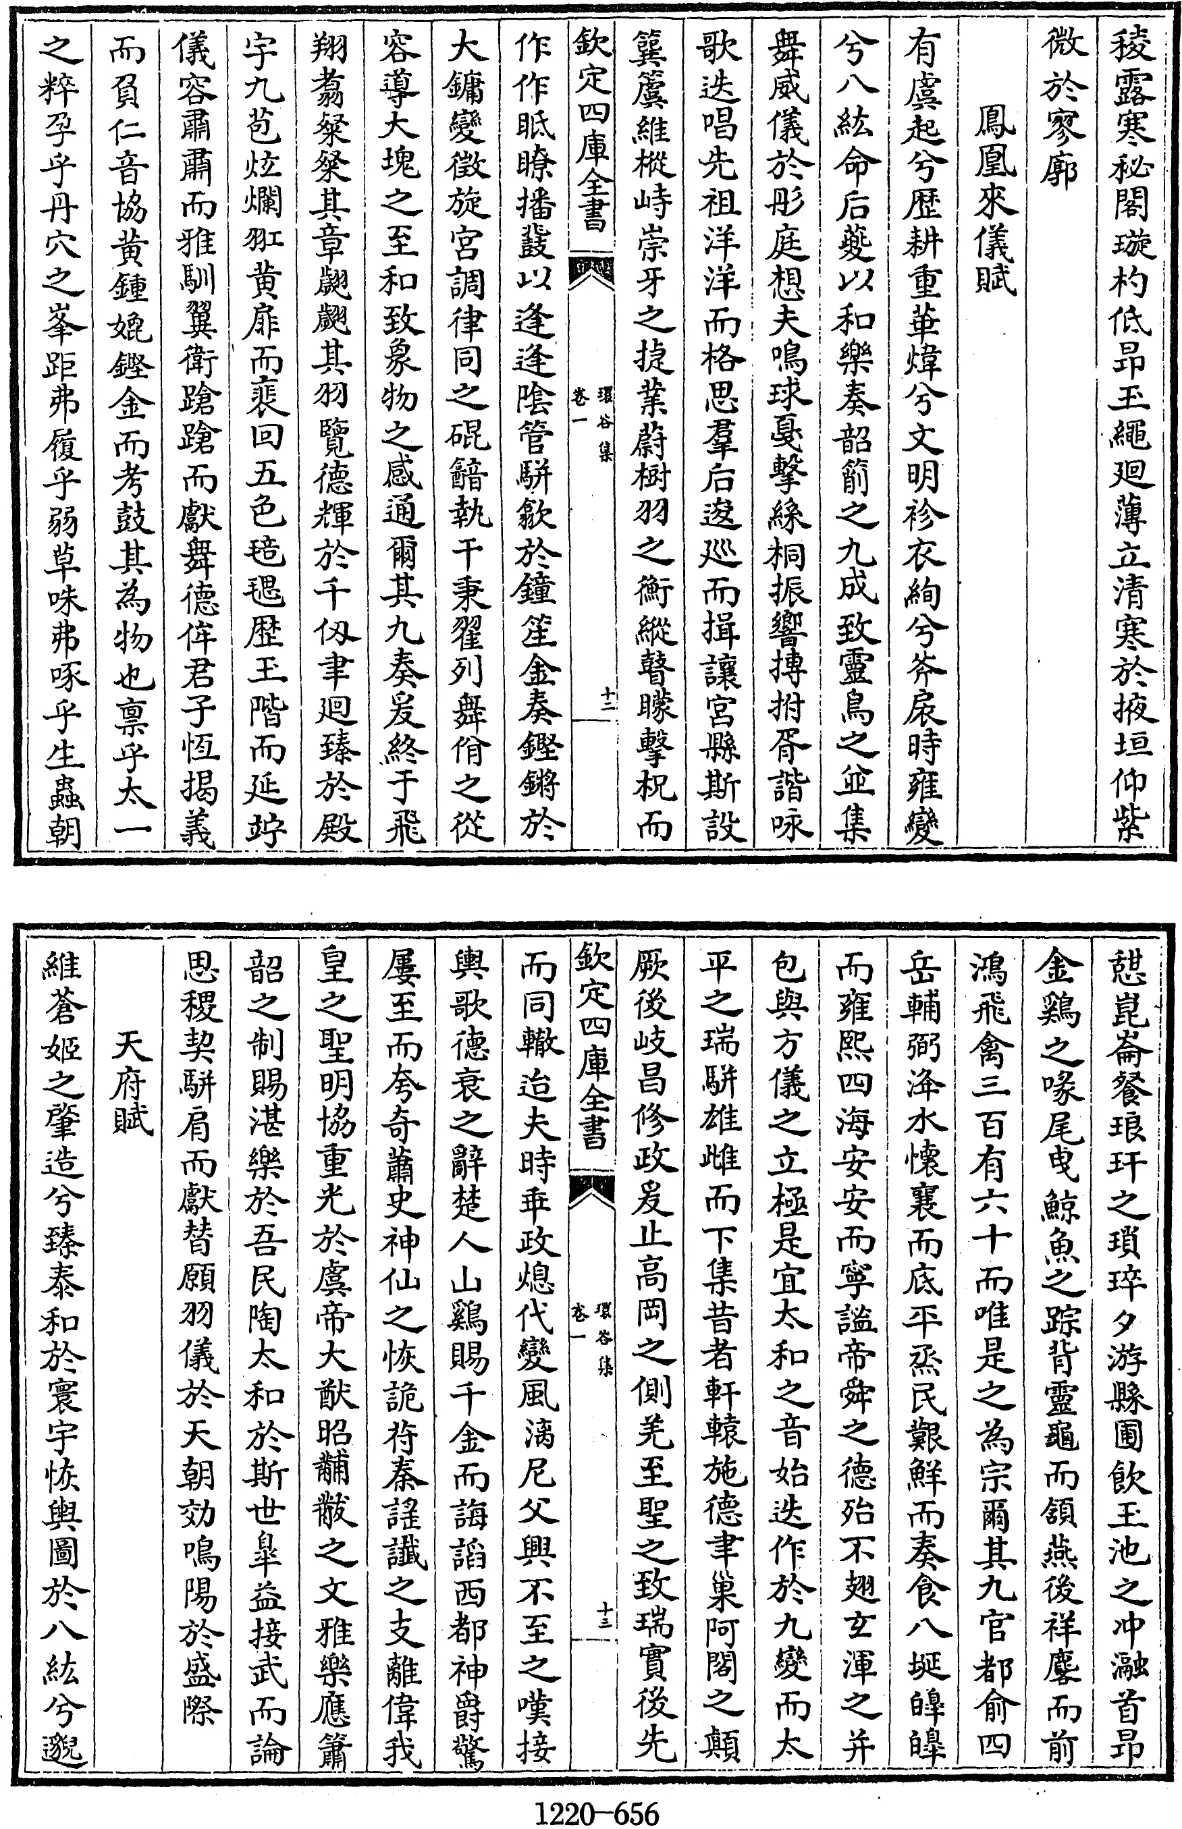 稜露寒秘閣璇杓低昂玉繩廻薄立清寒於掖垣仰紫
微於寥廓
鳳凰來儀賦
有虞起兮歴耕重華煒兮文明袗衣絢兮斧扆時雍變
兮八紘命后夔以和樂奏韶箾之九成致靈鳥之並集
舞威儀於彤庭想夫鳴球戛擊絲桐振響搏拊胥諧咏
歌迭唱先祖洋洋而格思羣后逡廵而揖讓宮縣斯設
簨簴維樅峙崇牙之捷業蔚樹羽之衡縱瞽矇擊柷而
欽定四庫全書
環谷集
卷一
十二
作作眡瞭播鼗以逢逢陰管駢歙於鐘笙金奏鏗鏘於
大鏞變徵旋宮調律同之硍韽執干秉翟列舞佾之從
容導大塊之至和致象物之感通爾其九奏爰終于飛
翔翥粲粲其章翽翽其羽覽德輝於千仭聿廻臻於殿
宇九苞炫爛羾黄扉而裵回五色䓀毸歴玉階而延竚
儀容肅肅而雅馴翼衛蹌蹌而獻舞德侔君子恆揭義
而負仁音協黄鍾婏鏗金而考鼓其為物也禀乎太一
之粹孕乎丹穴之峯距弗履乎弱草咮弗啄乎生蟲朝
憇崑崙餐琅玕之瑣琗夕游縣圃飲玉池之冲瀜首昂
金鷄之喙尾曳鯨魚之踪背靈龜而頷燕後祥麐而前
鴻飛禽三百有六十而唯是之為宗爾其九官都俞四
岳輔弼洚水懷襄而底平烝民艱鮮而奏食八埏皥皥
而雍熙四海安安而寧謐帝舜之德殆不翅玄渾之并
包與方儀之立極是宜太和之音始迭作於九變而太
平之瑞駢雄雌而下集昔者軒轅施德聿巢阿閣之顛
厥後岐昌修政爰止高岡之側羌至聖之致瑞實後先
欽定四庫全書
環谷集
卷一
十三
而同轍迨夫時乖政熄代變風漓尼父興不至之嘆接
輿歌德衰之辭楚人山鷄賜千金而誨謟西都神爵驚
屢至而夸奇蕭史神仙之恢詭苻秦謡讖之支離偉我
皇之聖明協重光於虞帝大猷昭黼黻之文雅樂應簫
韶之制賜湛樂於吾民陶太和於斯世臯益接武而論
思稷契駢肩而獻替願羽儀於天朝効鳴陽於盛際
天府賦
維蒼姬之肇造兮臻泰和於寰宇恢輿圖於八紘兮邈
1220-656